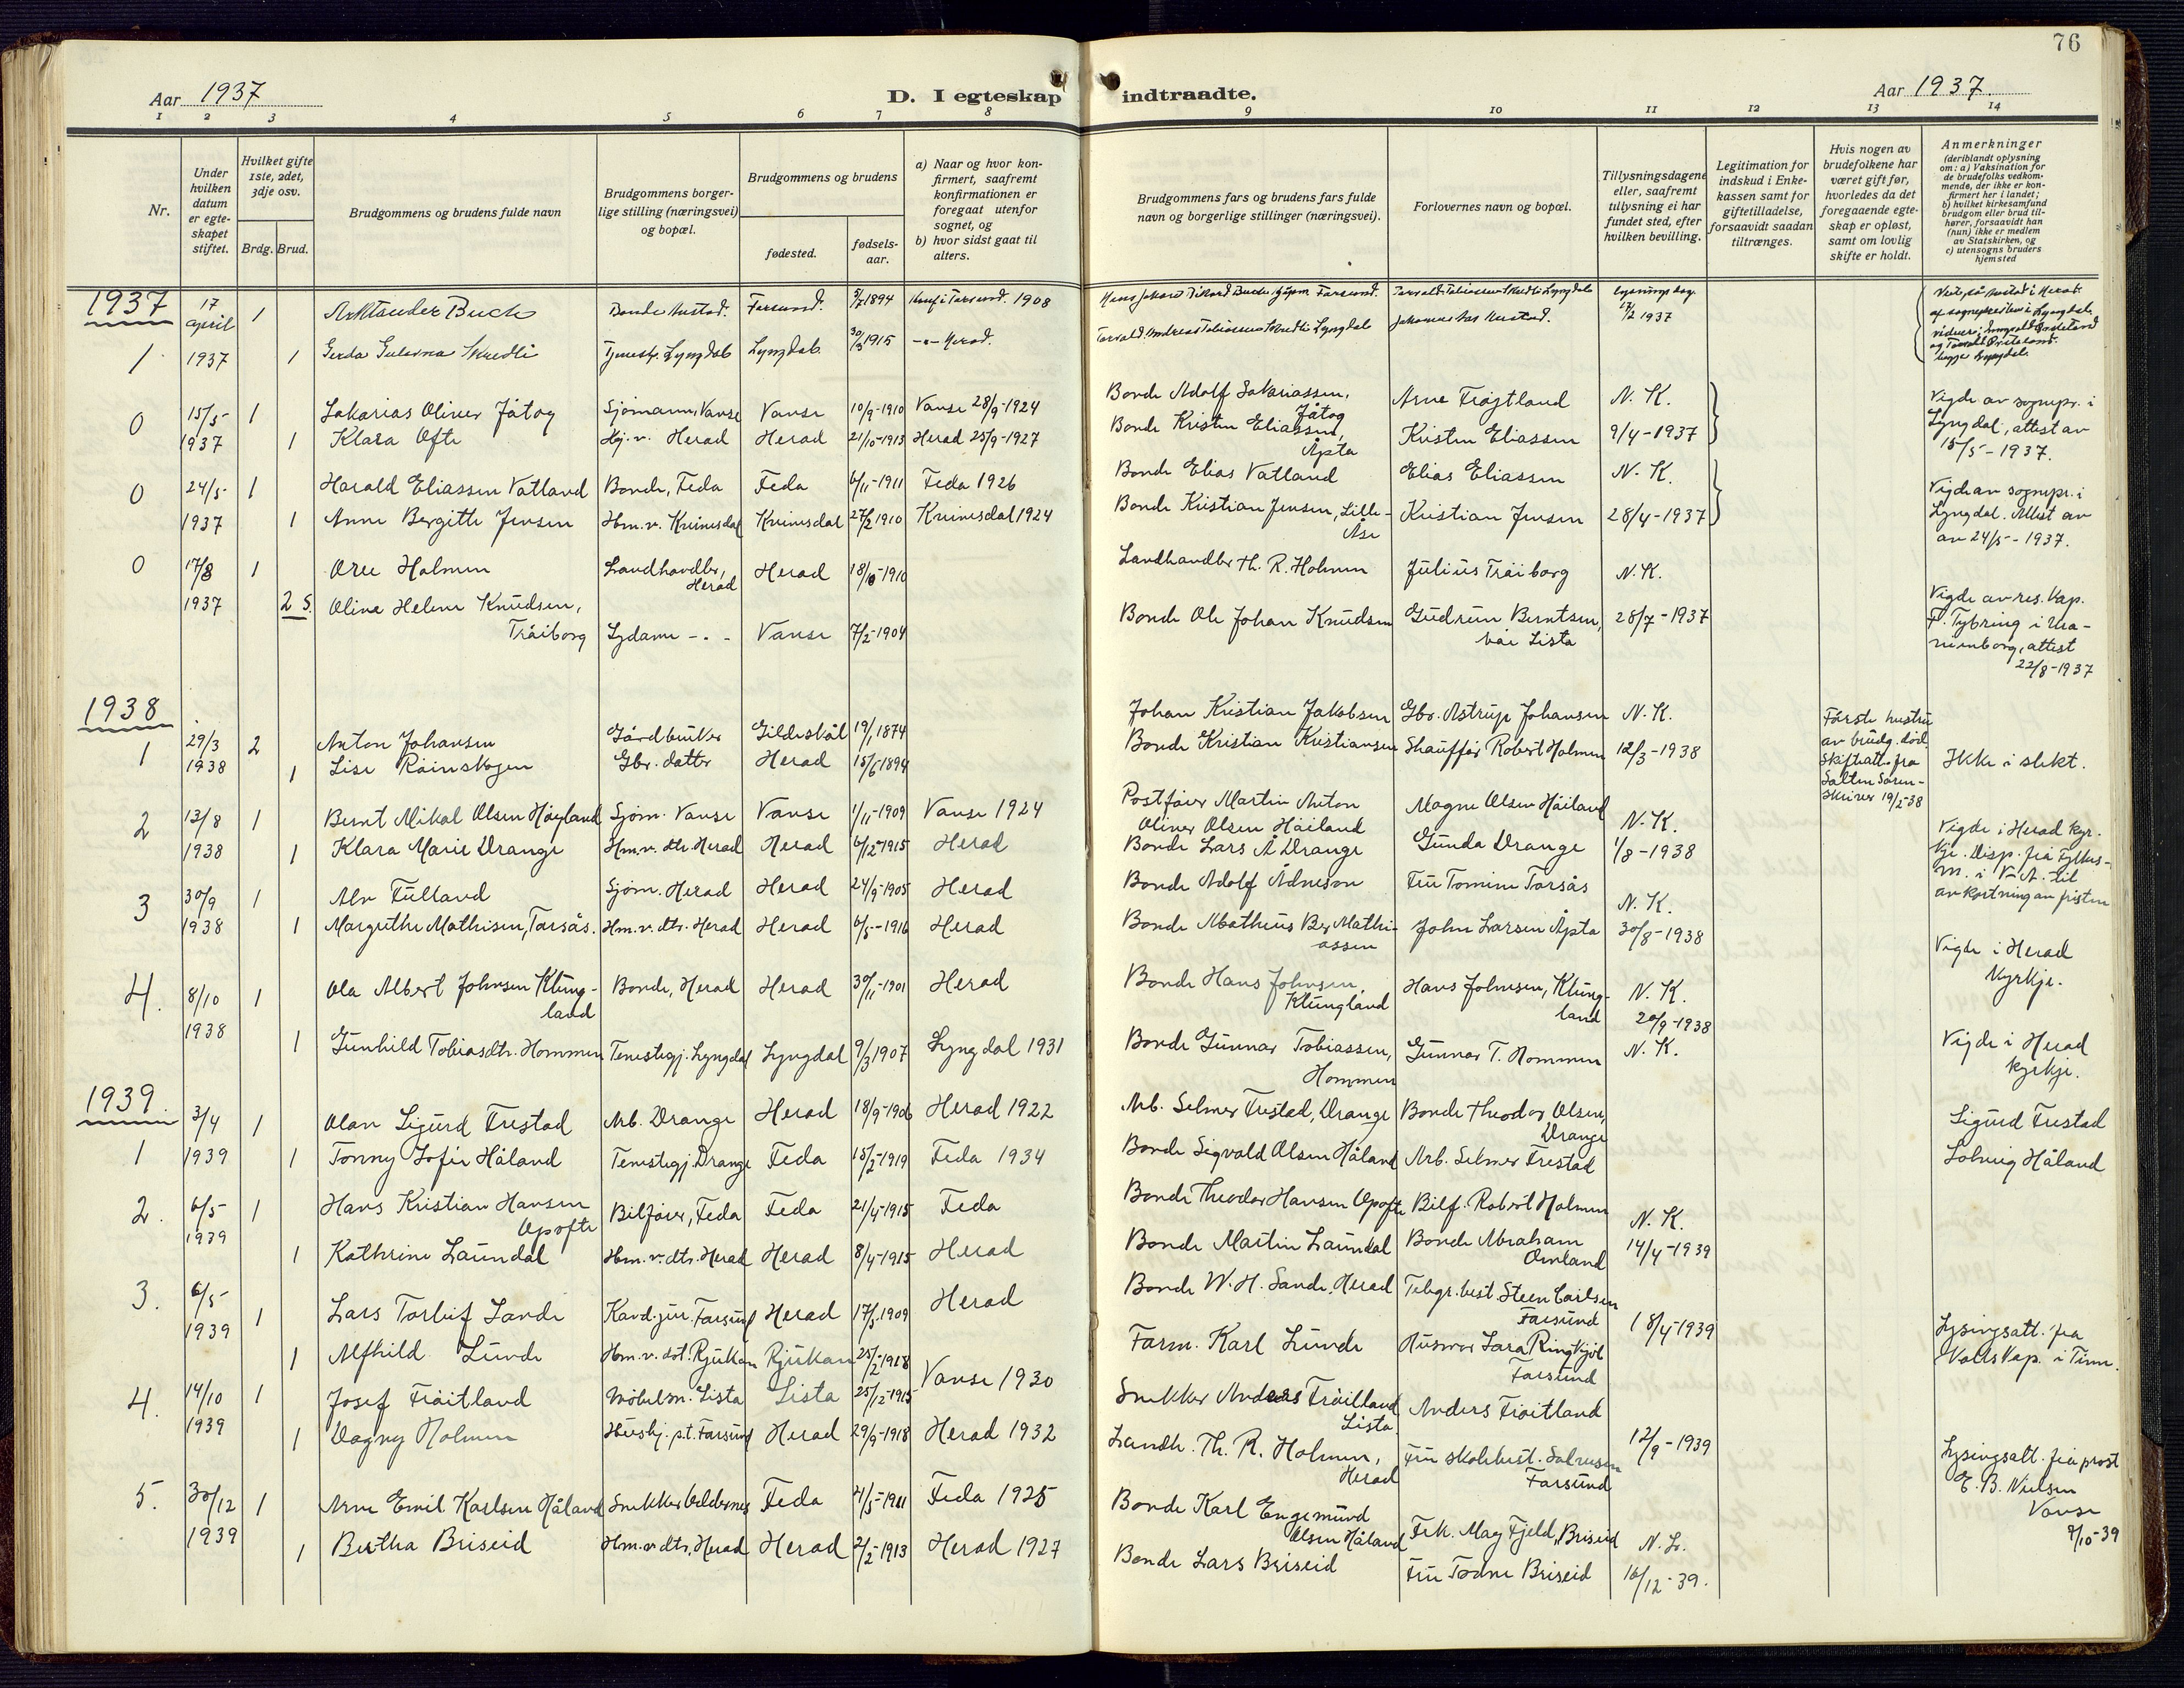 76
Aar 1937
D. I egteskap indtraadte.
Aar 1937.
1 2 3 4 5 6 7 8 9 10 11 12 13 14
Nr.
Under hvilken datum er egteskapet stiftet.
Hvilket gifte 1ste, 2det, 3dje osv.
Brdg. Brud.
Brudgommens og brudens fulde navn
Brudgommens borgerlige stilling (næringsvei) og bopæl.
Brudgommens og brudens
fødested.
fødselsaar.
a) Naar og hvor konfirmert, saafremt konfirmationen er foregaat utenfor sognet, og
b) hvor sidst gaat til alters.
Brudgommens fars og brudens fars fulde navn og borgerlige stillinger (næringsvei).
Forlovernes navn og bopæl.
Tillysningsdagene eller, saafremt tillysning ei har fundet sted, efter hvilken bevilling.
Legitimation for indskud i Enkekassen samt for giftetilladelse, forsaavidt saadan tiltrænges.
Hvis nogen av brudefolkene har været gift før, hvorledes da det foregaaende egteskap er opløst, samt om lovlig skifte er holdt.
Anmerkninger
(deriblandt oplysning om: a) Vaksination for de brudefolks vedkommende, der ikke er konfirmert her i landet; b) hvilket kirkesamfund brudgom eller brud tilhører, forsaavidt han (hun) ikke er medlem av Statskirken, og c) utensogns bruders hjemsted
1937
17 april 1 Buch Bonde Farsund. 1894 Farsund. 1908
1 1937 1 Gerda Skredli Lyngdal Lyngdal. 1915 Herad.
Lyngdal 1937
0 15/5- 1 Sakarias Oliver Jåtog Sjømann, Vanse Vanse 10/9-1910 Vanse 28/9-1924 Bonde Adolf Sakariassen, Jåtog Arne Frøjtland N. K.
1937 1 Klara Ofte Hj. v. Herad Herad 21/10-1913 Herad 25/9-1927 Bonde Kristen Eliassen, Åpta Kristen Eliassen 9/4-1937
Vigde av sognepr. i Lyngdal, attest av 15/5-1937.
0 24/5- 1 Harald Eliassen Vatland Bonde, Feda Feda 6/11-1911 Feda 1926 Bonde Elias Vatland Elias Eliassen N. K.
1937 1 Anne Bergitte Jensen Hm. v. Kvinesdal Kvinesdal 27/2 1910 Kvinesdal 1924 Bonde Kristian Jensen, Lille-Åse Kristian Jensen 28/4-1937
Vigde av sognepr. i Lyngdal. Attest av av 24/5-1937.
0 17/8 1 Holmen Landhandler, Herad Herad 18/10-1910 Landhandler Th. R. Holmen Julius Träiborg N. K.
1937 2 S. Oline Helene Knudsen, Träiborg Sydame -.- Vanse 7/2-1904 Bonde Ole Johan Knudsen Gudrun Berntsen, Lista 28/7-1937
Vigde av res. kap. F. Tybring i Uranienborg, attest 22/8-1937
1938
1 29/3 2 Anton Johansen Gårdbruker Gildeskål 19/1 1874 Johan Kristian Jakobsen Gbr. Astrup Johansen N. K.
1938 1 Lise Röinskogen Gbr. datter Herad 15/6 1894 Bonde Kristian Kristiansen Shauffør Robert Holmen 12/3-1938
Første hustru av brudg. död. Skifteatt. fra Salten Sorenskriver 19/2-38
Ikke i slekt.
2 13/8 1 Bernt Mikal Olsen Høyland Sjøm. Vanse Vanse 1/11-1909 Vanse 1924 Postfører Martin Anton Oliver Olsen Håiland Magne Olsen Håiland N. K.
1938 1 Klara Marie Drange Hm. v. dtr. Herad Herad 6/12-1915 Herad Bonde Lars Å Drange Gunda Drange 1/8-1938
Vigde i Herad kyrkje. Disp. frå Fylkesm. i V. A. til avkortning av fristen
3 30/9 1 Alv Fulland Sjøm. Herad Herad 24/9-1905 Herad Bonde Adolf Ådneson Fru Tomine Torsås N. K.
1938 1 Margrethe Mathisen, Torsås. Hm. v. dtr. Herad Herad 6/5-1916 Herad Bonde Matheus Mathiassen John Larsen Åpta 30/8-1938
Vigde i Herad kyrkje.
4. 8/10 1 Ola Albert Johnsen Klungland Bonde, Herad Herad 30/11-1901 Herad Bonde Hans Johnsen, Klungland Hans Johnsen, Klungland N. K. 20/9-1938
1938 1 Gunhild Tobiasdtr. Hommen Tenestegj. Lyngdal Lyngdal 9/3 1907 Lyngdal 1931 Bonde Gunnar Tobiassen, Hommen Gunnar T. Hommen N. K.
Vigde i Herad kyrkje.
1939
3/4 1 Olav Sigurd Frestad Arb. Drange Herad 18/9-1906 Herad 1922 Arb. Selmer Frestad, Drange Bonde Theodor Olsen, Drange Sigurd Frestad
1 1939 1 Tonny Sofie Håland Tenestegj. Drange Feda 15/2-1919 Feda 1934 Bonde Sigvald Olsen Håland Arb. Selmer Frestad Solveig Håland
2. 6/5- 1 Hans Kristian Hansen Opofte Bilfører, Feda Feda 21/4-1915 Feda Bonde Theodor Hansen Opofte Bilf. Robert Holmen N. K.
1939 1 Kathrine Laundal Hm. v. dtr. Herad Herad 8/4-1915 Herad Bonde Martin Laundal Bonde Abraham Omland 14/4-1939
3. 6/5- 1939 1 Lars Torleif Sande Kand. jur. Farsund Herad 17/5 1909 Herad Bonde W. H. Sande, Herad Telegr. best. Steen Carlsen Farsund 18/4-1939
1 Alfhild Lunde Hm. v. dot. Rjukan Rjukan 25/2-1918 Farm. Karl Lunde Husmor Lara Ringkjöb Farsund
Lysingsatt. fra kap. i Tinn.
4. 14/10 1 Josef Frøitland Möbelsn. Lista Lista 25/12-1915 Vanse 1930 Snekker Anders Frøitland Lista Anders Frøitland
1939 1 Dagny Holmen Hushj. p.t. Farsund Herad 29/9-1918 Herad 1932 Landh. Th. R. Holmen, Herad Fru skolebest. Salvesen Farsund 12/9-1939
Lysingsatt. frå prost E. B. Nielsen Vanse 9/10-39
5. 30/12 1 Arne Emil Karlsen Håland Snekker Feda 4/5-1911 Feda 1925 Bonde Karl Engemund Olsen Håland Frk. May Fjeld, Briseid N. L.
1939 1 Bertha Briseid Hm. v. dtr, Herad Herad 2/2-1913 Herad 1927 Bonde Lars Briseid Fru Todne Briseid 16/12-39.